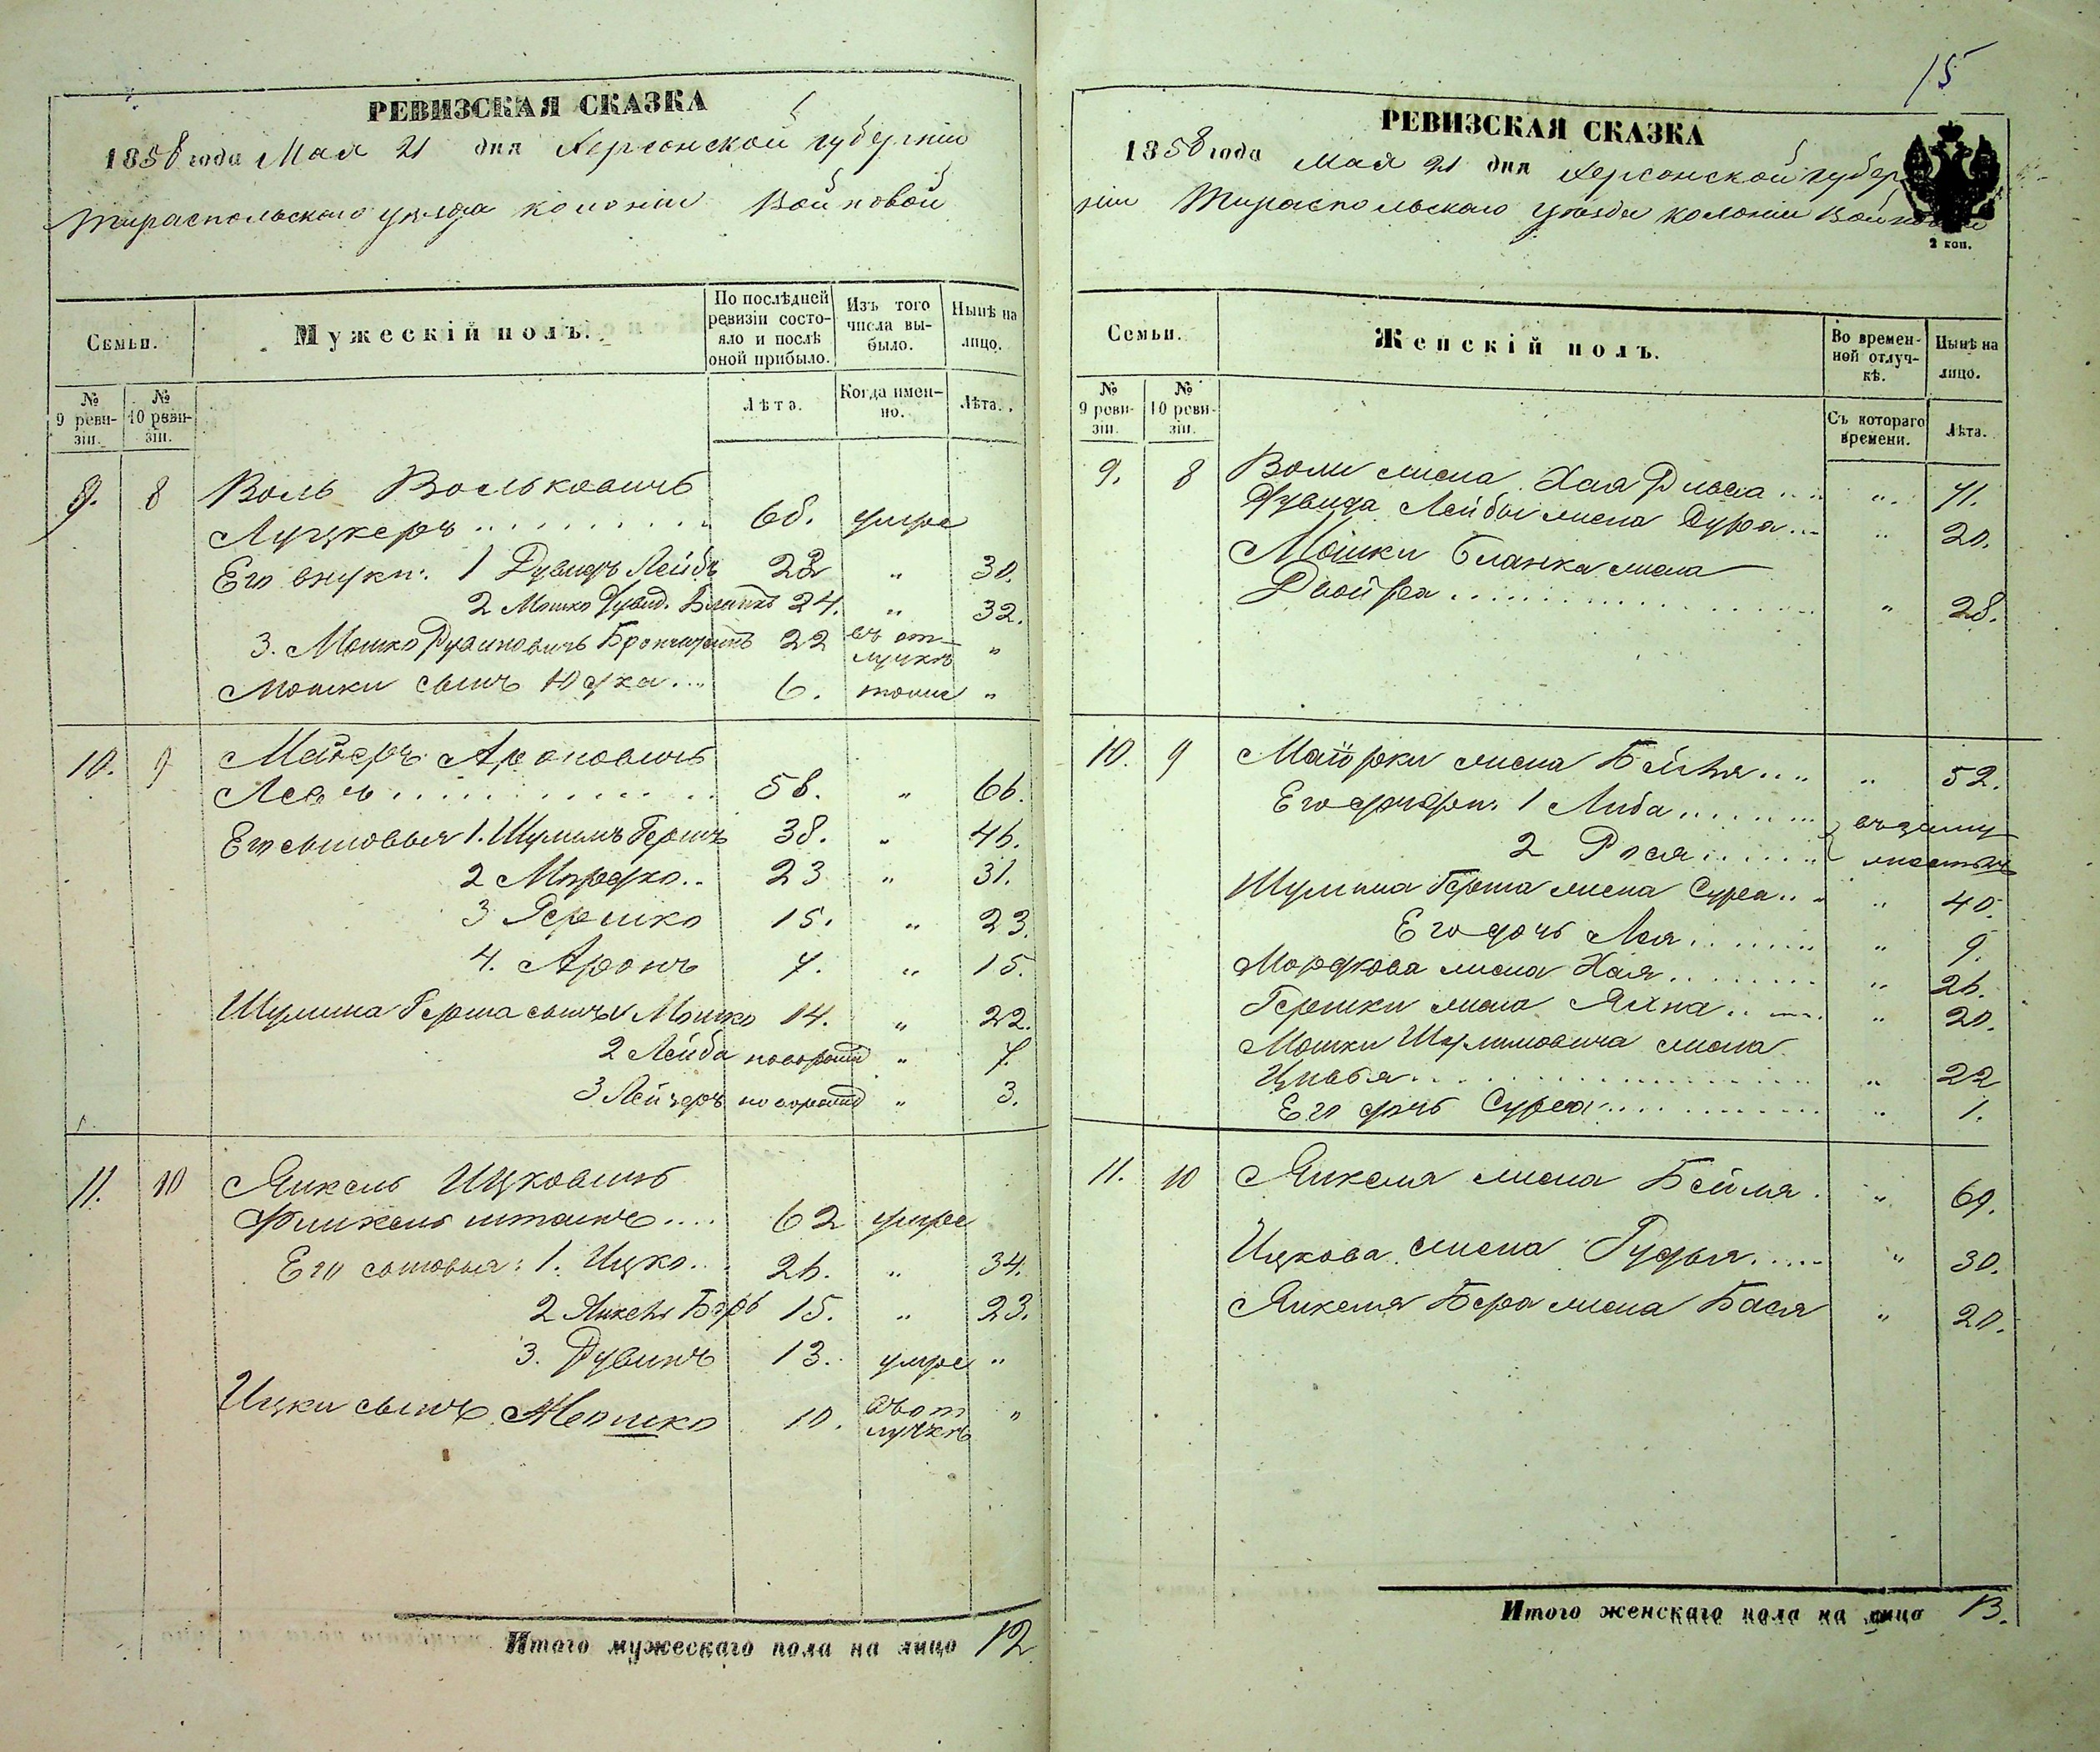 РЕВИЗСКАЯ СКАЗКА
1858 года Мая 21 дня Херсонской губерніи
Тираспольскаго уѣзда колоніи Войновой
Семьи.
Мужескій полъ.
По послѣдней ревизіи состояло и послѣ оной прибыло.
Изъ того числа выбыло.
Нынѣ на лицо.
№ 9 ревизіи.
№ 10 ревизіи.
Лѣта.
Когда именно.
Лѣта.
9. 8 Воль Вольковичъ
Луцкеръ 68. умре
Его внуки: 1 Дувидъ Лейбъ 22 " 30.
2 Мошко Дувид. Бланкъ 24. " 32.
3. Мошко Рувиновичъ 22 въ отлучкѣ "
Мошки сынъ Юдка 6. тоже "
10. 9 Маіеръ Ароновичъ
58. " 66.
Его сыновья 1. Шулимъ Гершъ 38. " 46.
2 Мордко 23 " 31.
3 Гершко 15. " 23.
4. Аронъ 7. " 15.
Шулима Герша сынъ 1 Мошко 14. " 22.
2 Лейба новорожд " 7.
3 Лейзеръ новорожд " 3.
11. 10 Янкель Ицковичъ
Финкельштейнъ 62 умре
Его сыновья: 1. Ицко 26. " 34.
2 Янкель Беръ 15. " 23.
3. Рувинъ 13. умре "
Ицки сынъ Мошко 10. въ отлучкѣ "
Итого мужескаго пола на лицо 12
15
РЕВИЗСКАЯ СКАЗКА
1858 года Мая 21 дня Херсонской губер
ніи Тираспольскаго уѣзда колоніи Войновой
2 коп.
Семьи.
Женскій полъ.
Во временной отлучкѣ.
Нынѣ на лицо.
№ 9 ревизіи.
№ 10 ревизіи.
Съ котораго времени.
Лѣта.
9. 8 Воли жена Хая Ривка " 71.
Дувида Лейбы жена " 20.
Мошки Бланка жена
Двойра " 28.
10. 9 Маіорки жена Бейля " 52.
Его дочери: 1 Либа въ заму
2 Рося жествѣ
Шулима Герша жена Сура " 40.
Его дочь Лея " 9.
Мордкова жена Хая " 26.
Гершки жена " 20.
Мошки Шулимовича жена
Цивья " 22
Его дочь Сура " 1.
11. 10 Янкеля жена Бейля " 69.
Ицкова жена Рудья " 30.
Янкеля Бера жена Бася " 20.
Итого женскаго пола на лицо 13.